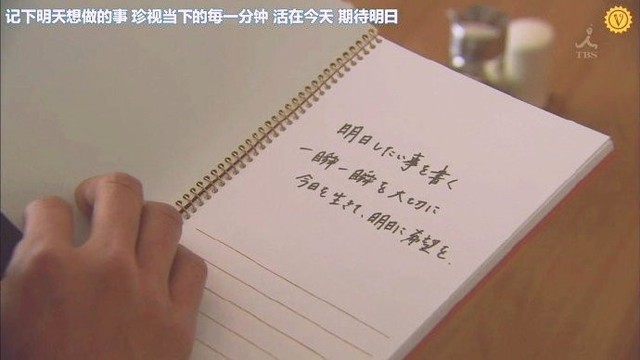 记下明天想做的事 珍视当下的每一分钟 活在今天 期待明日
V
TBS
明日したい事を書く
一瞬一瞬を大切に
今日を生きて、明日に希望を.